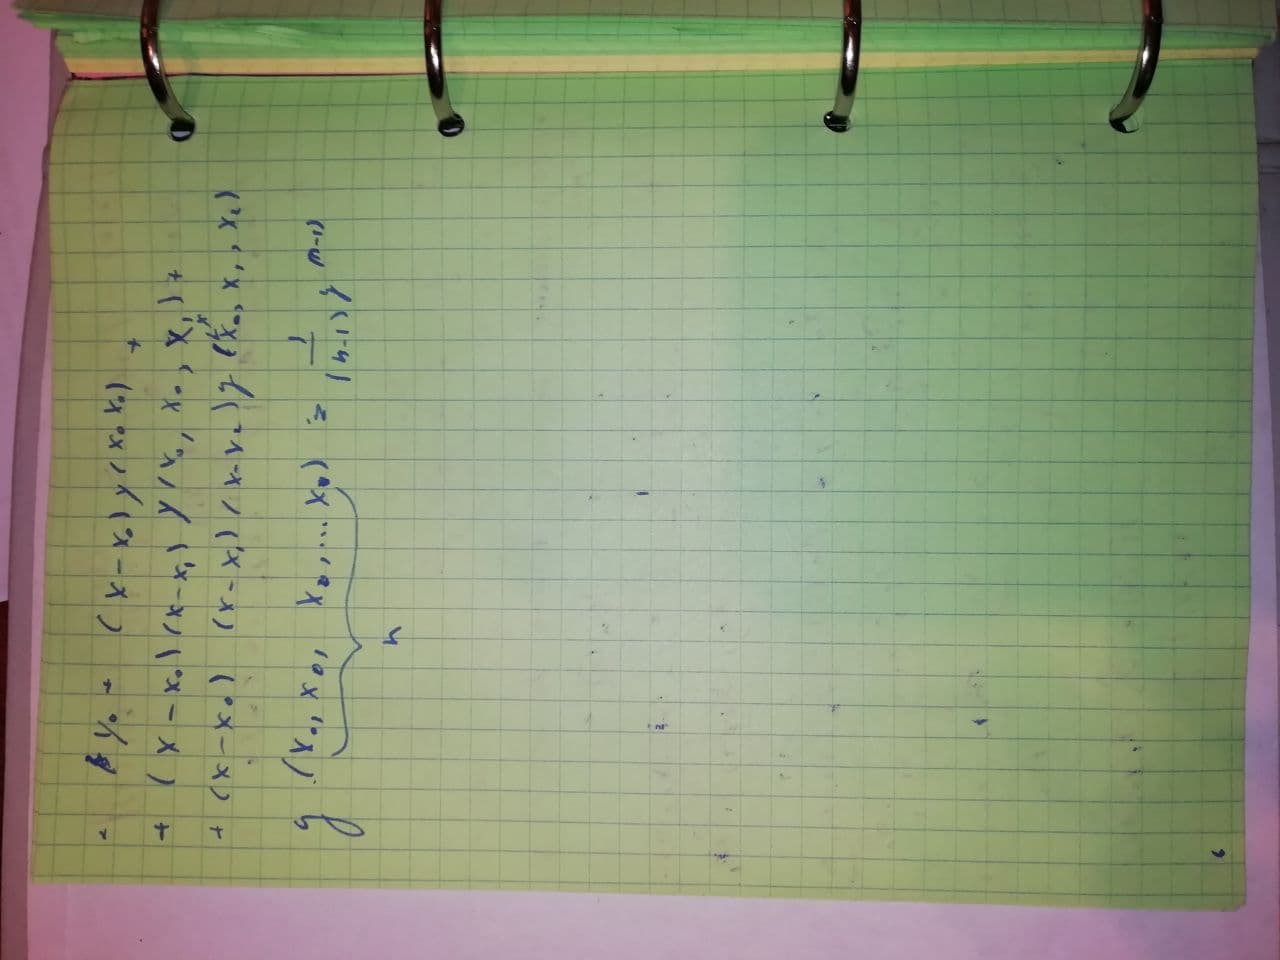 - y₀ + (x - x₀) y (x₀ x₀) +
+ (x - x₀) (x - x₁) y (x₀, x₀, x₁) +
+ (x - x₀) (x - x₁) (x - x₂) y (x₀, x₁, x₂)
y (x₀, x₀, x₀, ... x₀) = 1/(n-1) y (n-1)
n
6